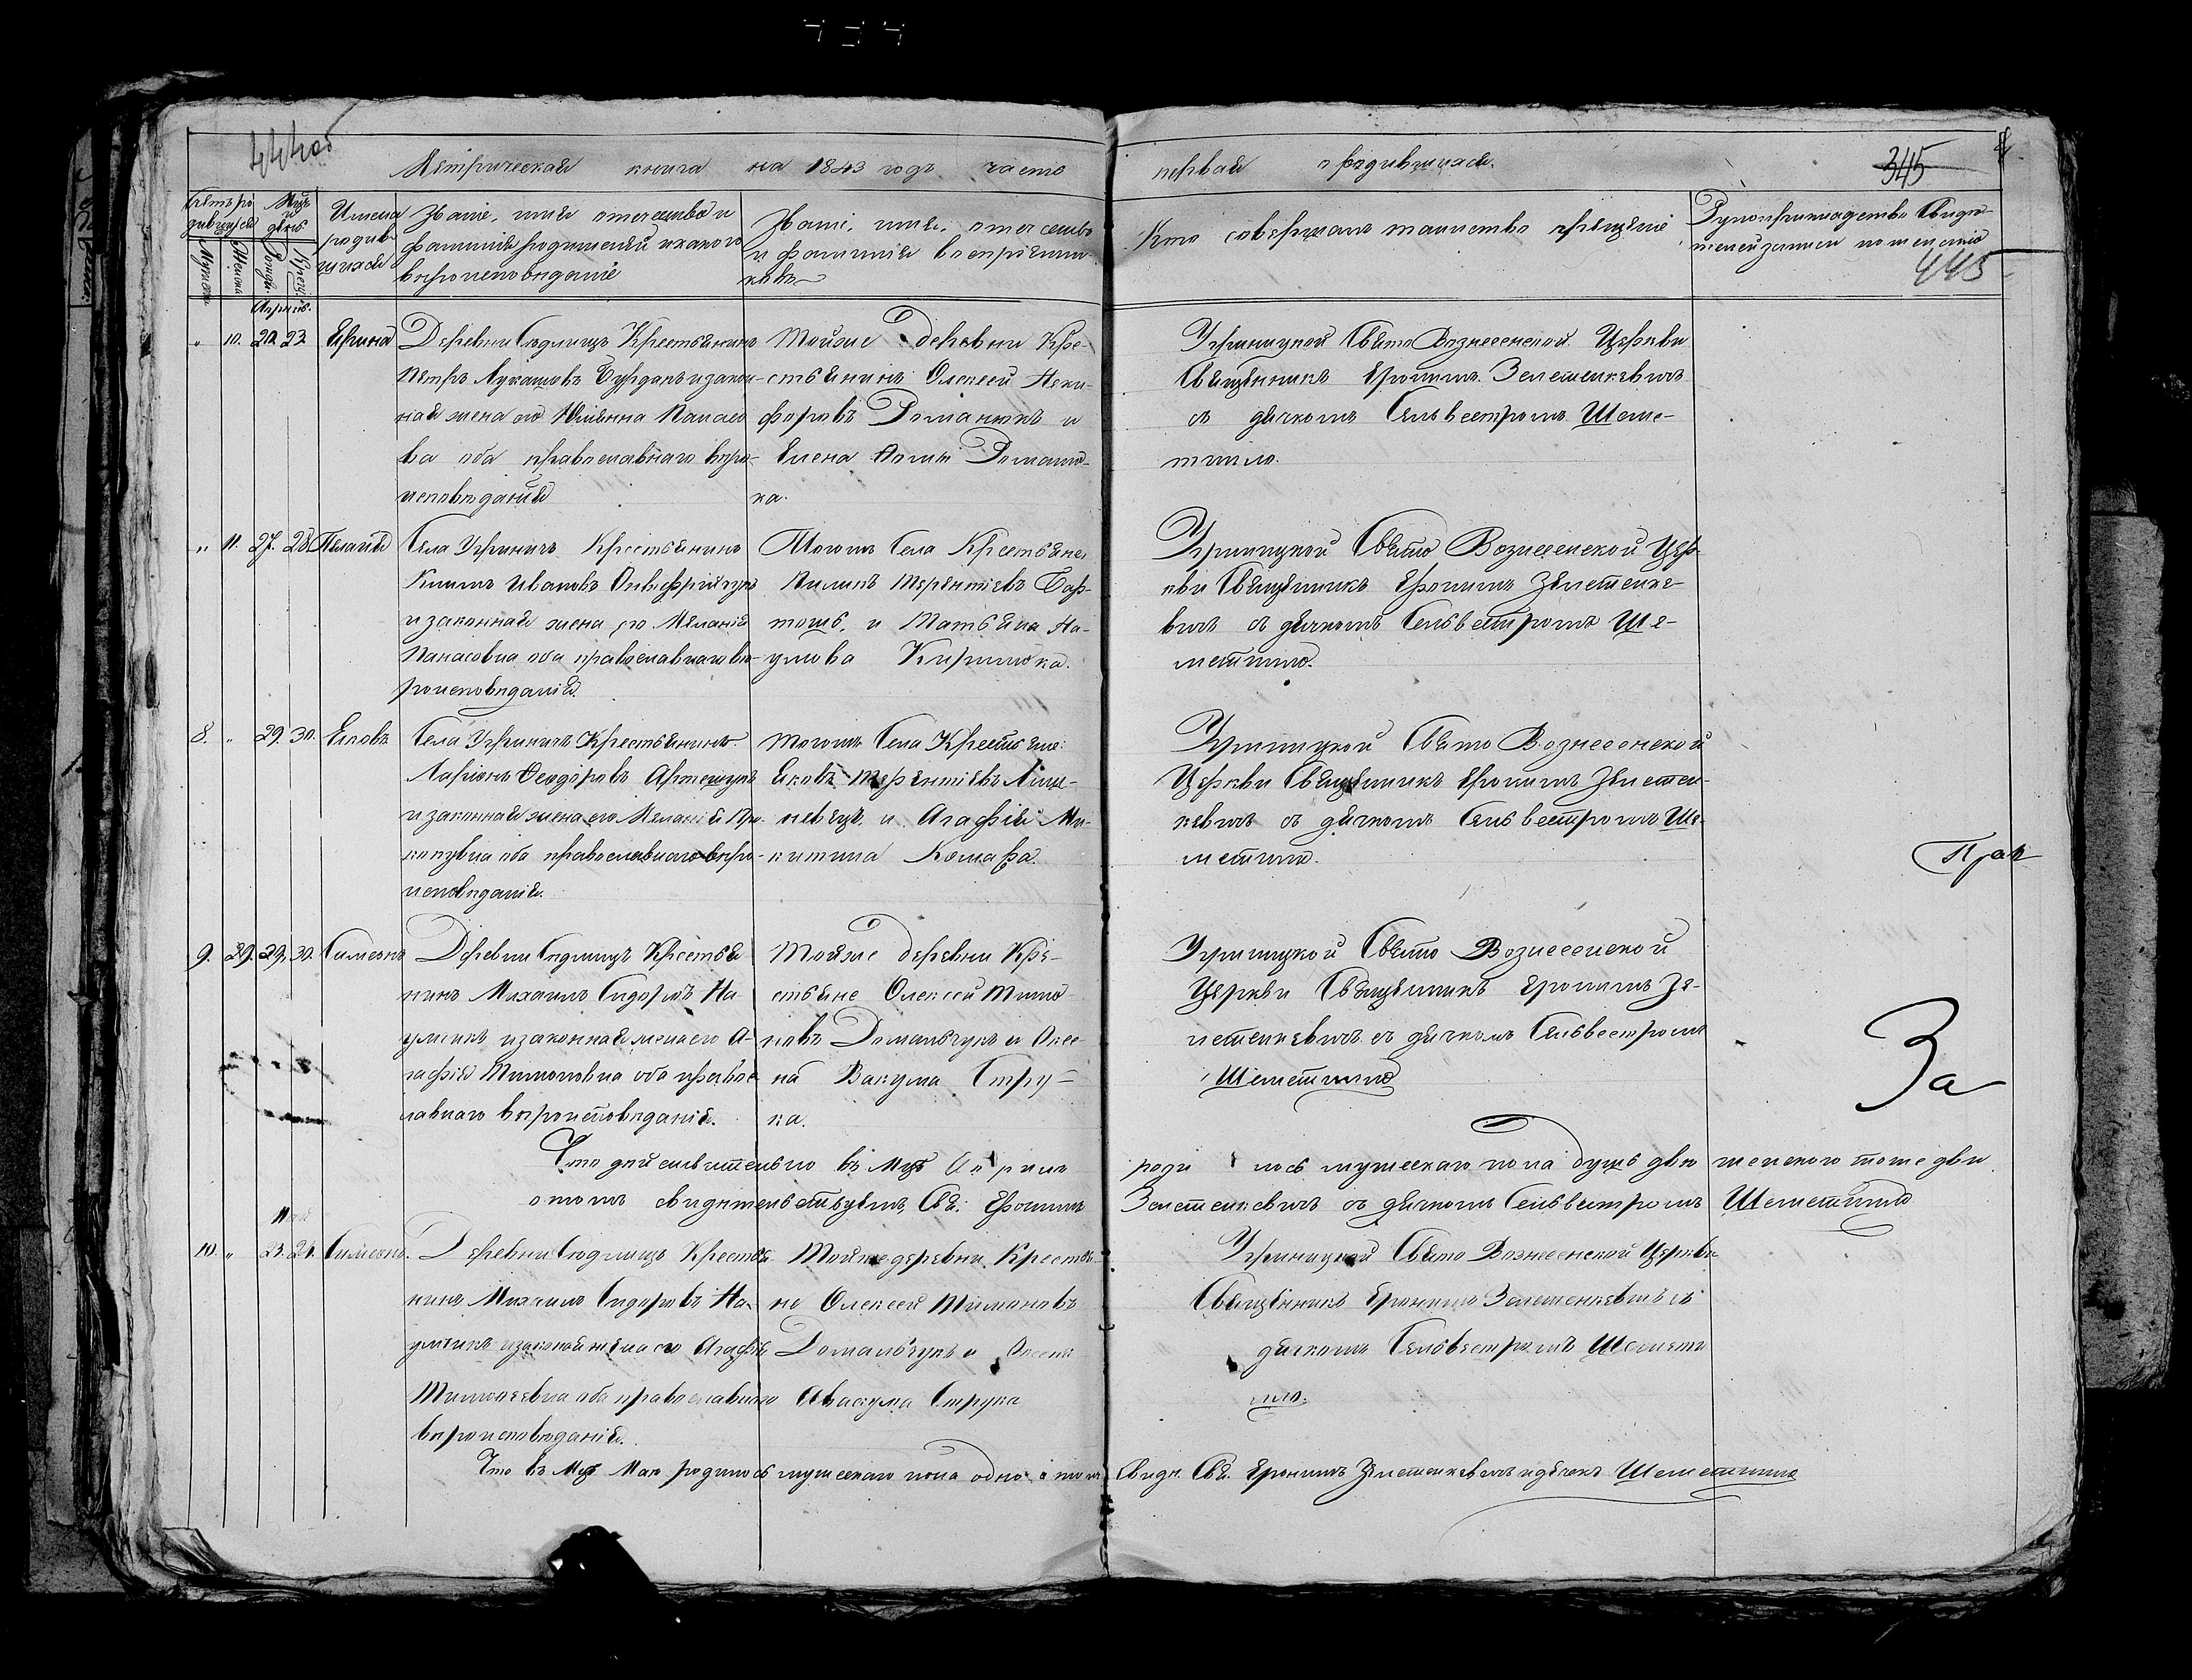 Метрическая книга на 1843 годъ часть первая о родившихся.
345
445
Счетъ родившихся
Мужеска
Женска
Мцъ и день
Рожд.
Крещ.
Имена родившихся
Званіе, имя отчество и
фамилія родителей и какого
вѣроисповѣданіе
Званіе, имя, отчество
и фамилія воспріемни-
ковъ
Кто совершалъ таинство крещеніе
Рукоприкладство свидѣ-
телей записи по желанію
Апрѣль.
" 10. 20. 23. Ирина
Деревни Сѣдлищъ Крестьянинъ
Петръ Лукашовъ Бурдакъ и закон-
ная жена его Ульянна Панасо
ва оба православнаго вѣро-
исповѣданія
Тойже деревни Кре-
стьянинъ Олексей Ники-
форовъ Романюкъ и
Елена Романю-
ка.
Угриницкой Свято Вознесенской Церкви
Священникъ Еронимъ Зелетенкевичъ
съ дячкомъ Сильвестромъ Шеме-
тилло.
" 11. 27. 28. Пелагія
Села Угриничъ Крестьянинъ
Климъ Ивановъ Онифрійчукъ
и законная жена его Меланія
Панасовна оба православнаго вѣ-
роисповѣданія.
Тогожъ Села Крестьяне
Пилипъ Терентіевъ Бар-
тошъ, и Татьяна На-
умова Кирилюка.
Угриницкой Свято Вознесенской Цер-
кви Священникъ Еронимъ Зелетенке-
вичъ съ дячкомъ Сильвестромъ Ше-
метилло.
8. " 29. 30. Яковъ
Села Угриничъ Крестьянинъ
Ларіонъ Феодоровъ Артешукъ
и законная жена его Меланія Про-
копувна оба православнаго вѣро-
исповѣданія.
Тогожъ Села Крестьяне
Яковъ Терентіевъ
и Агафія Ми-
китина Комара.
Угриницкой Свято Вознесенской
Церкви Священникъ Еронимъ Зелетен-
кевичъ съ дячкомъ Сильвестромъ Ше-
метилло.
9. 29. 29. 30. Симеонъ
Деревни Сѣдлищъ Крестья
нинъ Михаилъ Сидоровъ На
умикъ и законная жена его А-
гафія Тимоновна оба правос
лавнаго вѣроисповѣданія.
Тойже деревни Кре-
стьяне Олексей Тимо-
новъ Доманьчукъ и Оксе-
на Вакума Стру-
ка.
Угриницкой Свято Вознесенской
Церкви Священникъ Еронимъ Зе-
летенкевичъ съ дячкомъ Сильвестромъ
Шеметилло
За
Что дѣйствительно въ Мцѣ Априлѣ родилось мужескаго пола душъ двѣ женского тоже двѣ.
о томъ свидѣтельствуемъ, Свя: Еронимъ Зелетенкевичъ съ дячкомъ Сильвестромъ Шеметилло
Май
10. " 23. 24. Симеонъ.
Деревни Сѣдлищъ Крестья
нинъ Михаилъ Сидоровъ На
умикъ и законная жена его Агафія
Тимоновна оба православнаго
вѣроисповѣданія.
Тойже деревни Крестья
не Олексей Тимоновъ
Доманьчукъ и Оксена
Авакума Струка
Угриницкой Свято Вознесенской Церкви
Священникъ Еронимъ Зелетенкевичъ съ
дячкомъ Сильвестромъ Шемети
лло.
Что въ Мцѣ Маѣ родилось мужескаго пола одно о томъ Свидѣ. Свя. Еронимъ Зелетенкевичъ и дячекъ Шеметилло